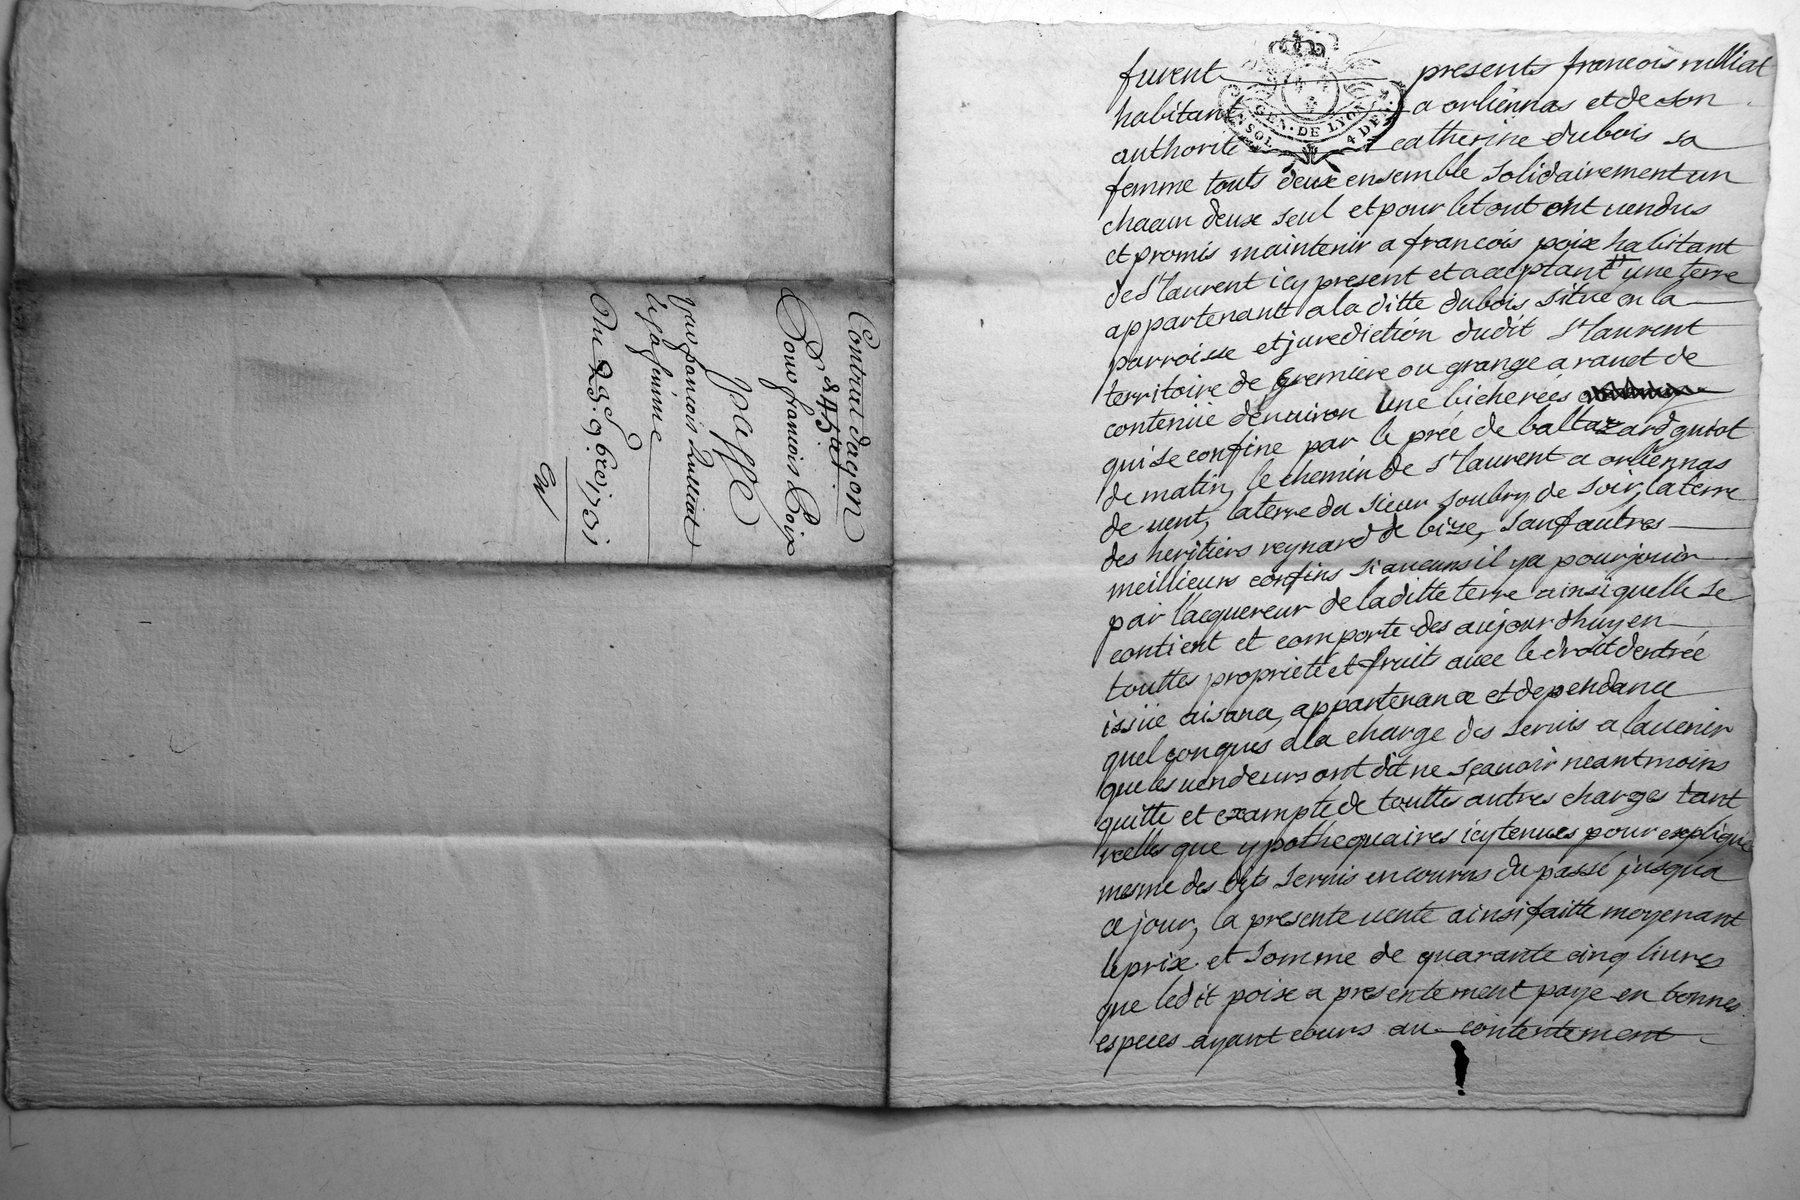 Contrat dacq.on
de 45 lt
Pour francois Poix
passé
par francois Rulliat
et sa femme
Du 25. 9bre 1731
furent presents francois rulliat
habitant a orliennas et de son
authorité catherine dubois sa
GEN. DE LYON
4 DE
femme touts deux ensemble solidairement un
chacun deux seul et pour le tout ont uendus
et promis maintenir a francois poix habitant
de st laurent icy present et acceptant une terre
appartenant a la ditte dubois situé en la
parroisse et jurediction dudit st laurent
territoire de gremiere ou grange a rauet de
contenüe denuiron une bicherées
qui se confine par le prée de baltazard guiot
de matin, le chemin de st laurent a orliennas
de uent, la terre du sieur soubry de soir, la terre
des heritiers reynard de bize, sauf autres
meillieurs confins si aucuns il ya pour jouir
par l'acquereur de laditte terre ainsi quelle se
contient et comporte des aujourdhuy en
touttes proprieté et fruits auec le droit dentrée
issüe aisance, appartenance et dependance
quelconques a la charge des seruis a lauenir
que les uendeurs ont dit ne sçauoir neantmoins
quitte et exampte de touttes autres charges tant
reelles que ypothequaires icy tenues pour expliqué
mesme des dits seruis encourus du passé jusqua
ce jour, la presente uente ainsi faitte moyenant
le prix et somme de quarante cinq liures
que ledit poix a presentement payé en bonnes
especes ayant cours au contentement